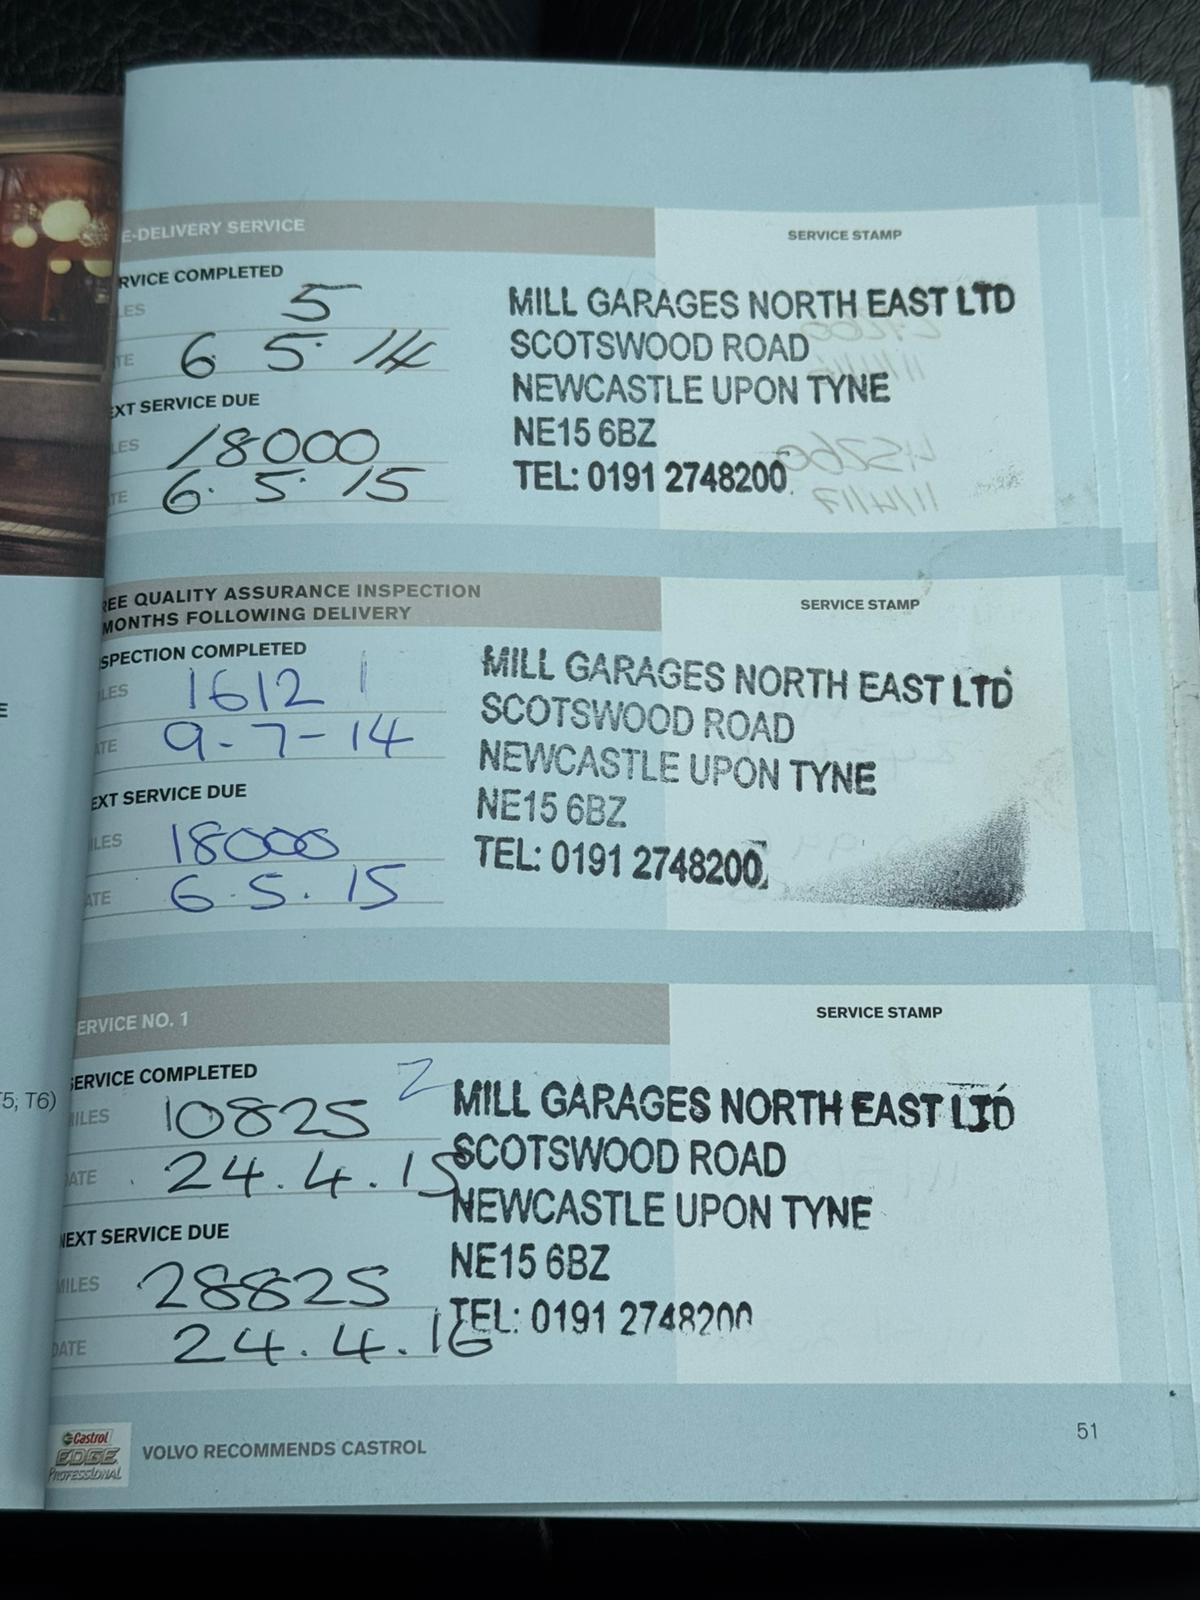 E-DELIVERY SERVICE
SERVICE STAMP
RVICE COMPLETED
LES 5
TE 6 5 14
EXT SERVICE DUE
LES 18000
TE 6. 5. 15
MILL GARAGES NORTH EAST LTD
SCOTSWOOD ROAD
NEWCASTLE UPON TYNE
NE15 6BZ
TEL: 0191 2748200
REE QUALITY ASSURANCE INSPECTION
MONTHS FOLLOWING DELIVERY
SERVICE STAMP
SPECTION COMPLETED
LES 1612 1
ATE 9-7-14
EXT SERVICE DUE
LES 18000
ATE 6.5.15
MILL GARAGES NORTH EAST LTD
SCOTSWOOD ROAD
NEWCASTLE UPON TYNE
NE15 6BZ
TEL: 0191 2748200
ERVICE NO. 1
SERVICE STAMP
SERVICE COMPLETED
2
MILES 10825
DATE 24.4.15
NEXT SERVICE DUE
MILES 28825
DATE 24.4.16
MILL GARAGES NORTH EAST LTD
SCOTSWOOD ROAD
NEWCASTLE UPON TYNE
NE15 6BZ
TEL: 0191 2748200
E
5; T6)
Castrol
EDGE
PROFESSIONAL
VOLVO RECOMMENDS CASTROL
51